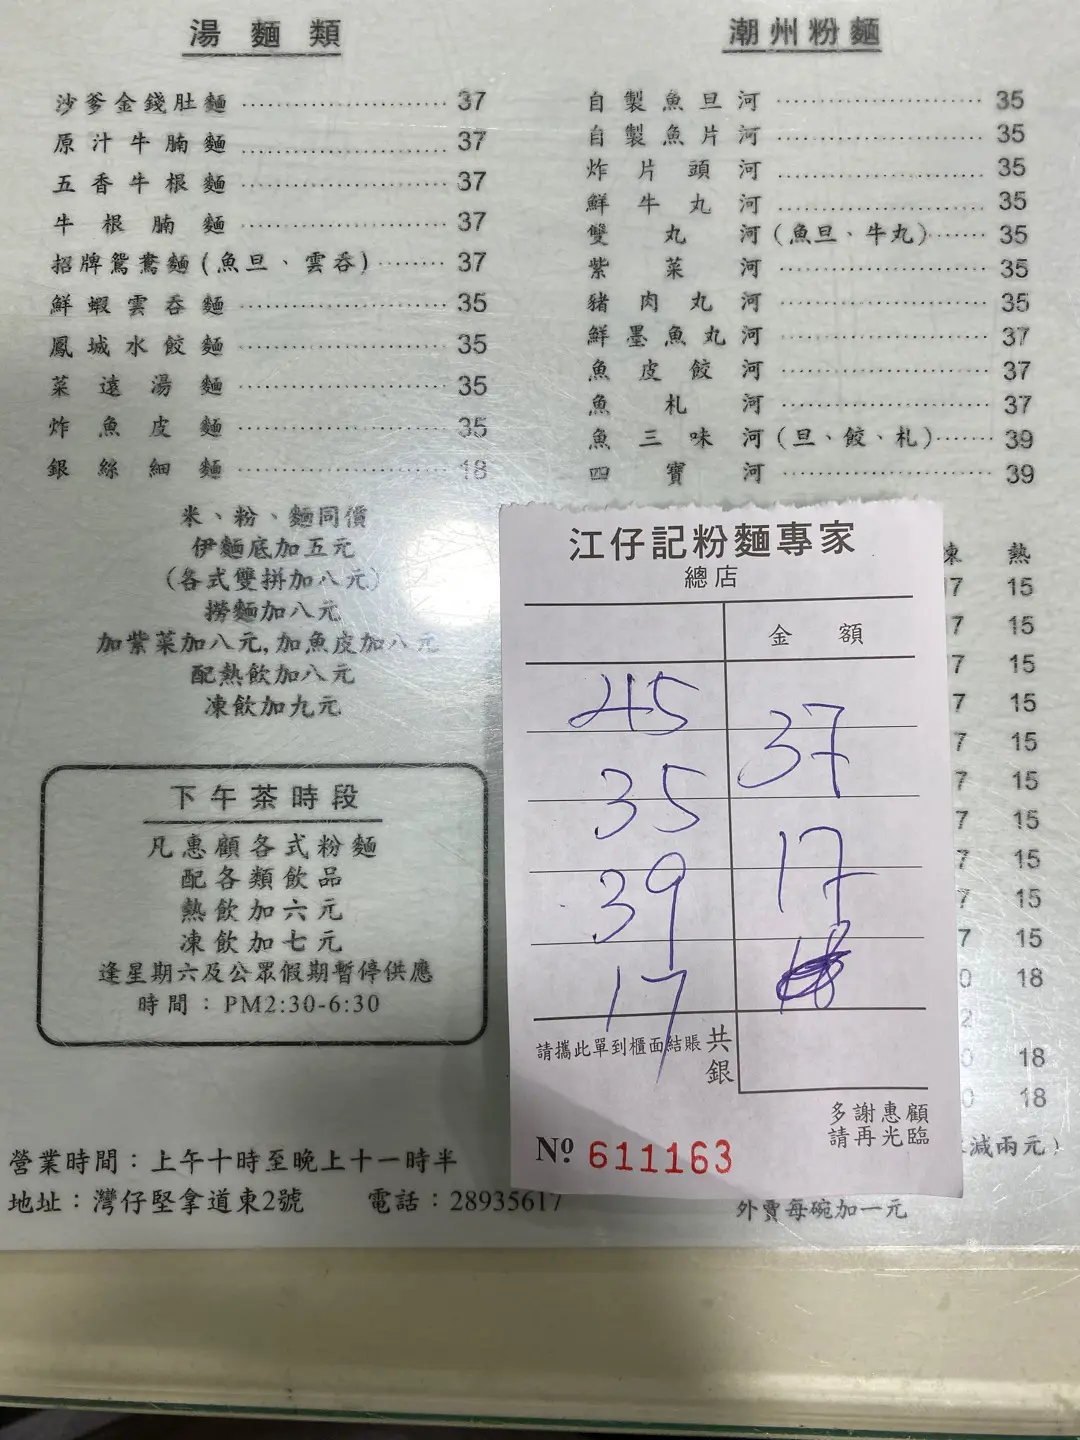 湯麵類
沙爹金錢肚麵 37
原汁牛腩麵 37
五香牛根麵 37
牛根腩麵 37
招牌鴛鴦麵(魚旦、雲吞) 37
鮮蝦雲吞麵 35
鳳城水餃麵 35
菜遠湯麵 35
炸魚皮麵 35
銀絲細麵 18
米、粉、麵同價
伊麵底加五元
(各式雙拼加八元)
撈麵加八元
加紫菜加八元,加魚皮加八元
配熱飲加八元
凍飲加九元
下午茶時段
凡惠顧各式粉麵
配各類飲品
熱飲加六元
凍飲加七元
逢星期六及公眾假期暫停供應
時間：PM2:30-6:30
營業時間：上午十時至晚上十一時半
地址：灣仔堅拿道東2號 電話：28935617
潮州粉麵
自製魚旦河 35
自製魚片河 35
炸片頭河 35
鮮牛丸河 35
雙丸河(魚旦、牛丸) 35
紫菜河 35
豬肉丸河 35
鮮墨魚丸河 37
魚皮餃河 37
魚札河 37
魚三味河(旦、餃、札) 39
四寶河 39
凍 熱
17 15
7 15
7 15
7 15
7 15
7 15
7 15
7 15
7 15
7 15
0 18
2
0 18
0 18
減兩元)
外賣每碗加一元
江仔記粉麵專家
總店
金額
45
37
35
39
17
17
請攜此單到櫃面結賬
共銀
多謝惠顧
請再光臨
Nº 611163